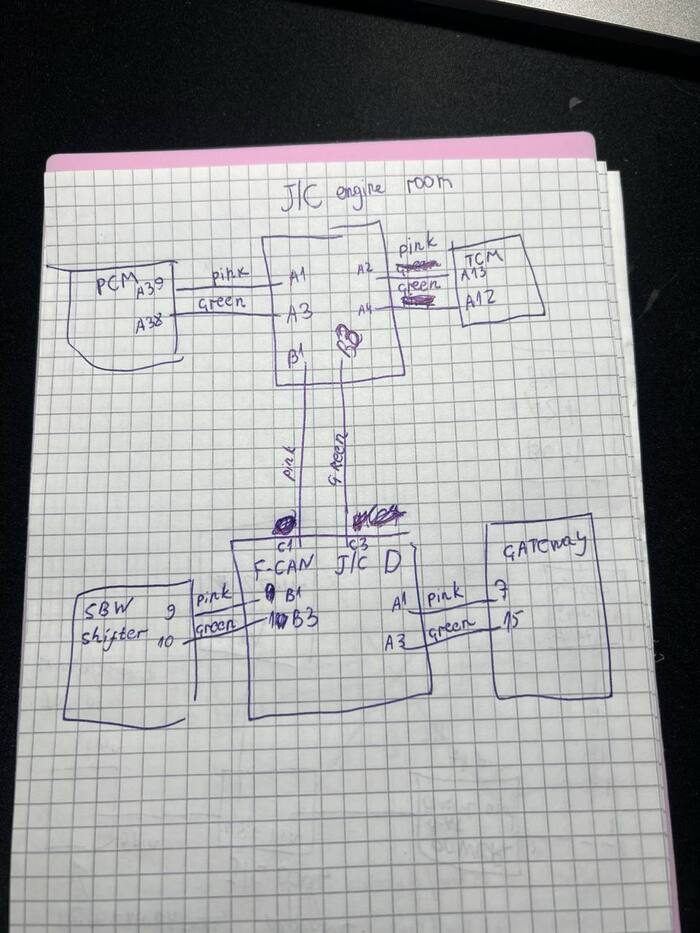 J/C engine room
PCM
A39
A38
pink
green
A1
A3
B1
A2
A4
B3
pink
green
TCM
A13
A12
pink
green
C1
C3
F-CAN J/C D
SBW
shifter
9
10
pink
green
B1
B3
A1
A3
pink
green
GATEway
7
15